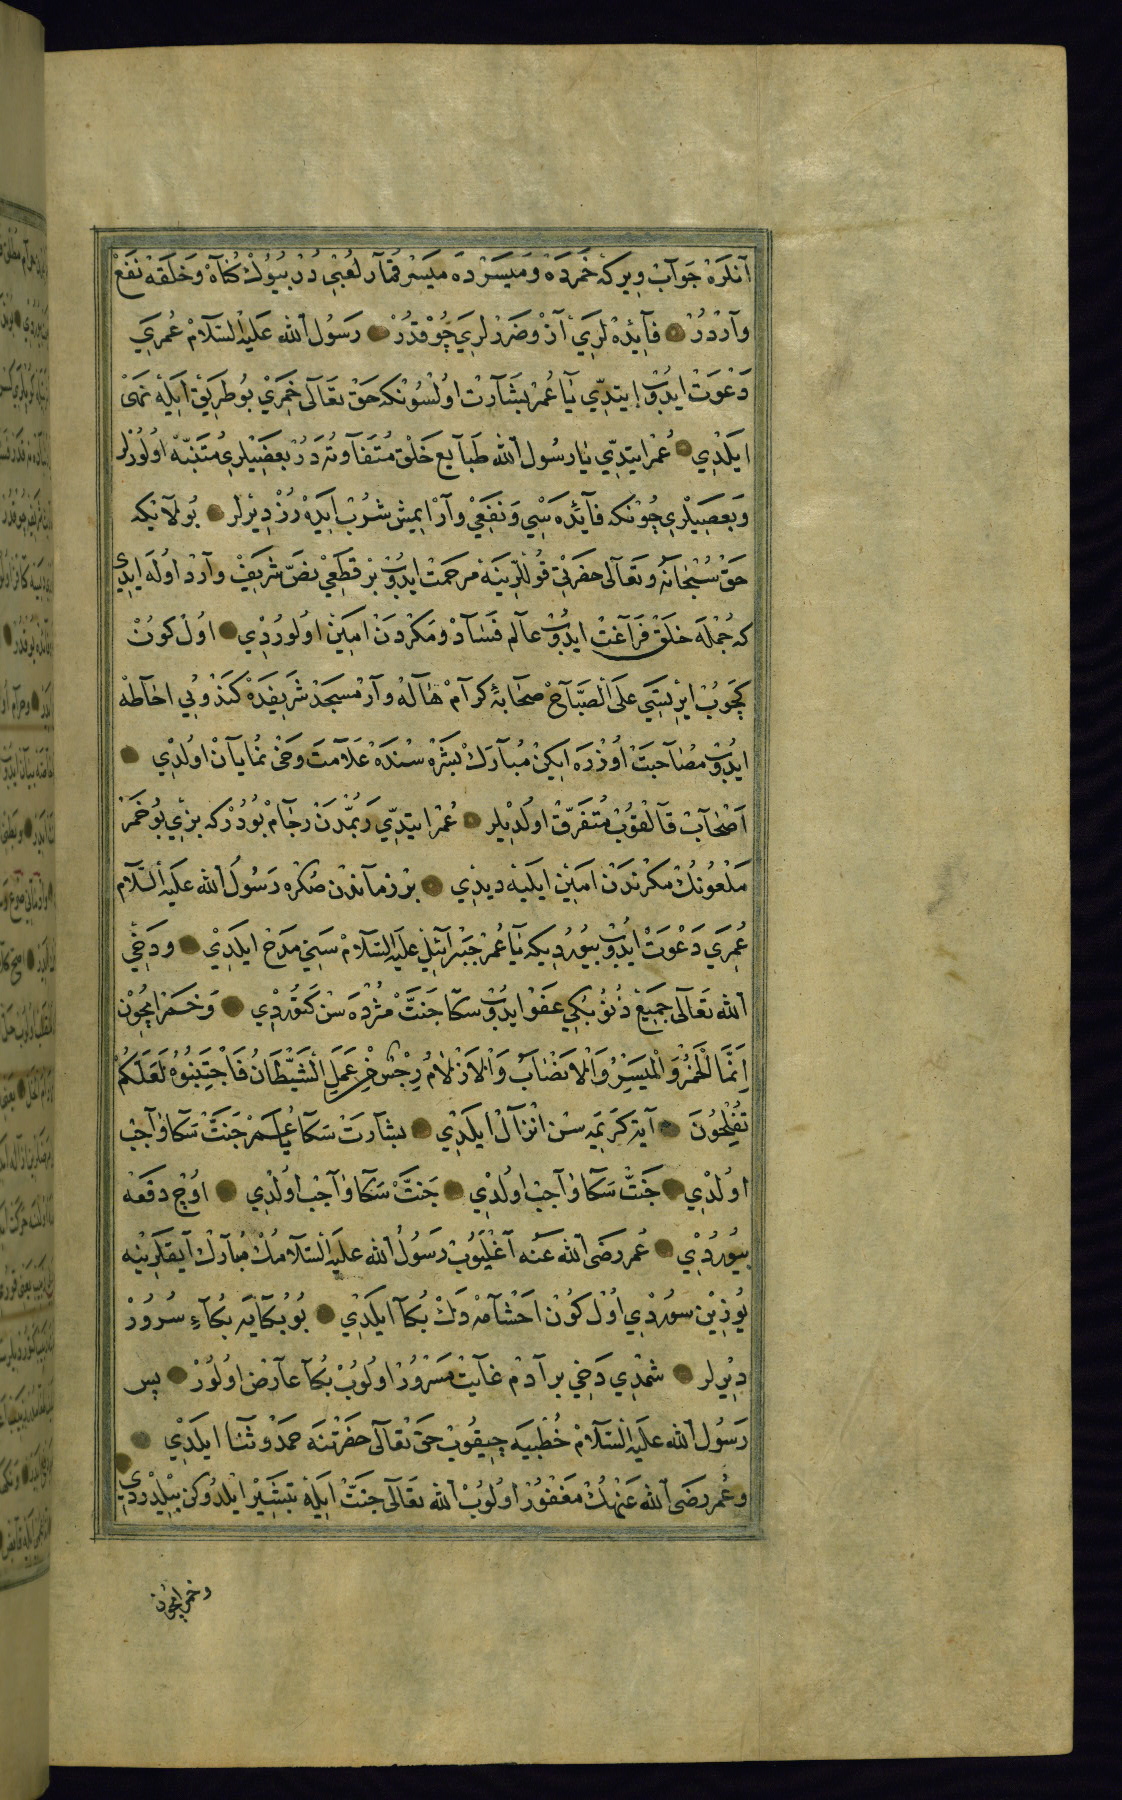 آنلره جواب ویر که خمرده و میسرده میسر قمار لعبی در بیوك كناه و خلقه نفع
واردر فائده لری آز و ضررلری چوقدر رسول الله علیه السلام عمری
دعوت ایدوب ایتدی یا عمر بشارت اولسونکه حق تعالی خمری بو طریق ایله نهی
ایلدی عمر ایتدی یا رسول الله طبایع خلق متفاوته در بعضیلری متنبه اولورلر
وبعضیلری چونکه فائده سی و نفعی وار ایمش شرب ایده رز دیرلر بولا نیکه
حق سبحانه و تعالی حضرتی قوللرینه مرحمت ایدوب بر قطعی نص شریف وارد اوله ایدی
که جمله خلق فراغت ایدوب عالم فساد و مکردن امین اولوردی اول کون
کچوب ایرتسی علی الصباح صحابۀ کرام هاله وار مسجد شریفده کندوبی احاطه
ایدوب مصاحبت اوزره ایکن مبارك بشره سنده علامت وحی نمایان اولدی
اصحاب قالقوب متفرق اولدیلر عمر ایتدی ربمدن رجام بودر که بزی بو خمر
ملعونك مکرندن امین ایلیه دیدی بر زماندن صکره رسول الله علیه السلام
عمری دعوت ایدوب بیوردیکه یا عمر جبرائیل علیه السلام سنی مدح ایلدی ودخی
الله تعالی جمیع ذنوبکی عفو ایدوب سکا جنت مژده سن كتوردی و خمر ایچون
انما الخمر والمیسر والانصاب والازلام رجس من عمل الشیطان فاجتنبوه لعلکم
تفلحون آیة کریمه سن انزال ایلدی بشارت سکا یا عمر جنت سکا واجب
اولدی جنت سکا واجب اولدی جنت سکا واجب اولدی اوچ دفعه
بیوردی عمر رضی الله عنه آغلیوب رسول الله علیه السلامك مبارك آیقلرینه
یوزین سوردی اول کون اخشامه دك بكا ایلدی بو بکایه بکاء سرور
دیرلر شمدی دخی بر آدم غایت مسرور اولوب بکا عارض اولور پس
رسول الله علیه السلام خطبیه چیقوب حق تعالی حضرتنه حمد و ثنا ایلدی
و عمر رضی الله عنهك مغفور اولوب الله تعالی جنت ایله تبشیر ایلدوکن بیلدردی
و خمر ایچون